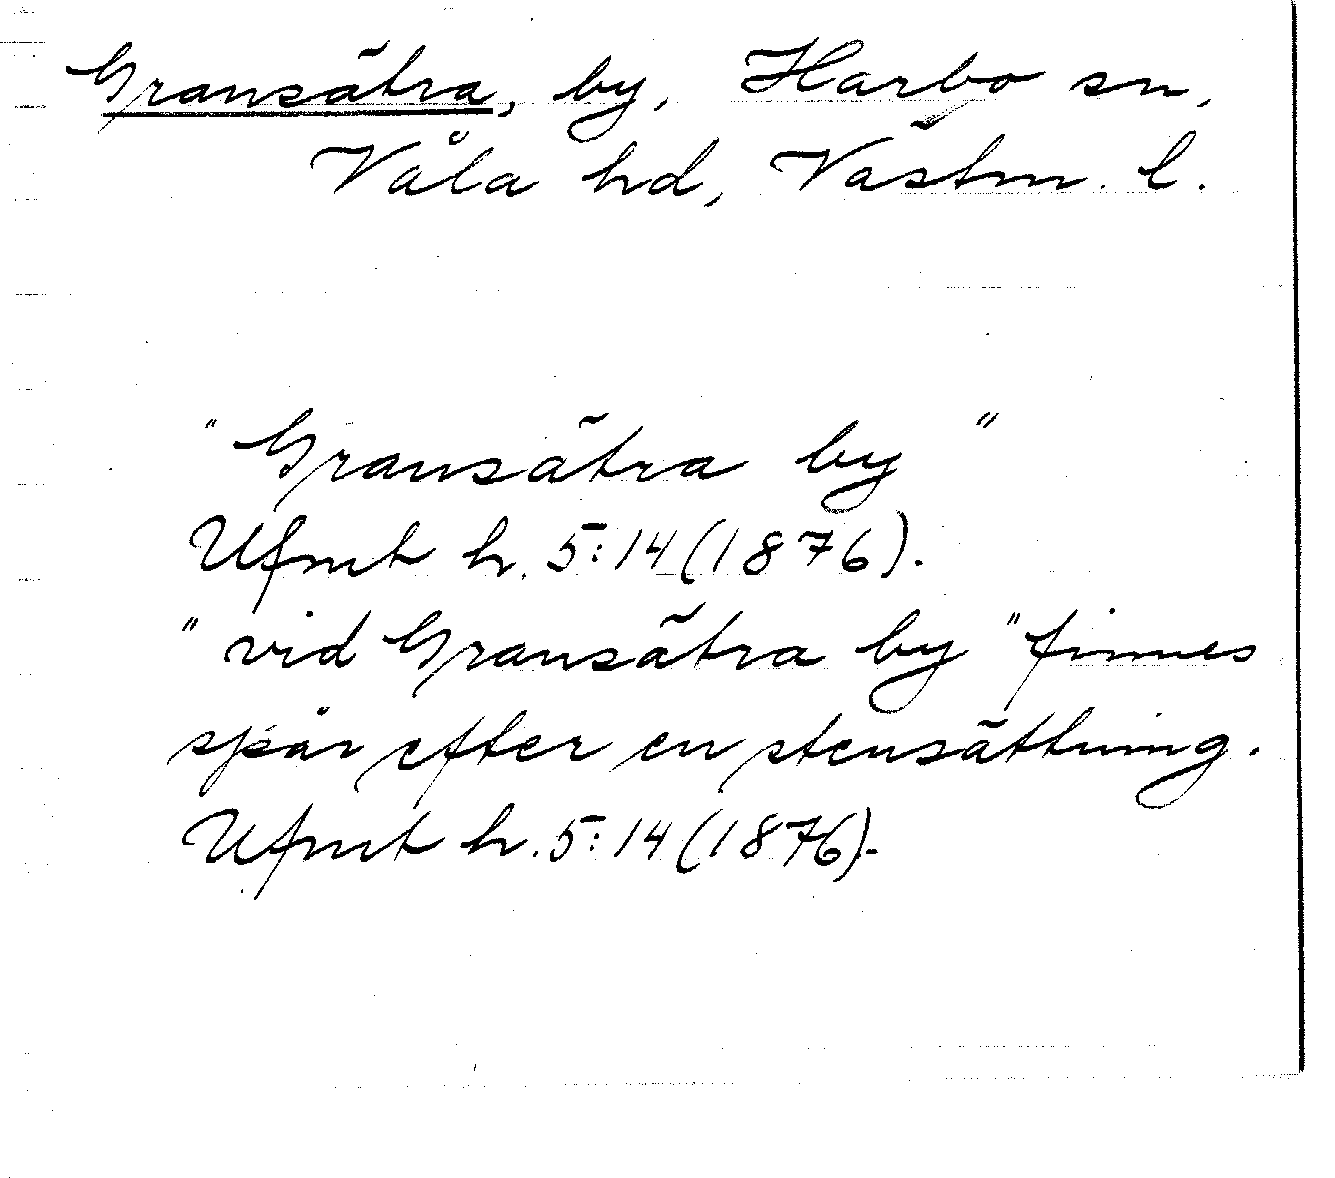 Gransätra, by, Harbo sn,
Våla hd, Västm. l.
"Gransätra by"
Ufmt h. 5:14 (1876).
"vid Gransätra by" finnes
spår efter en stensättning.
Ufmt h. 5:14 (1876).